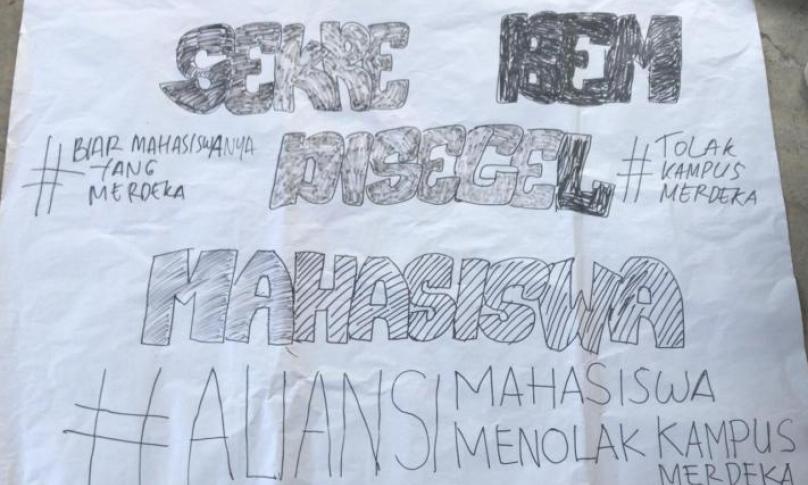 SEKRE BEM
#BIAR MAHASISWANYA
YANG
MERDEKA
DISEGEL
#TOLAK
KAMPUS
MERDEKA
MAHASISWA
#ALIANSI MAHASISWA
MENOLAK KAMPUS
MERDEKA